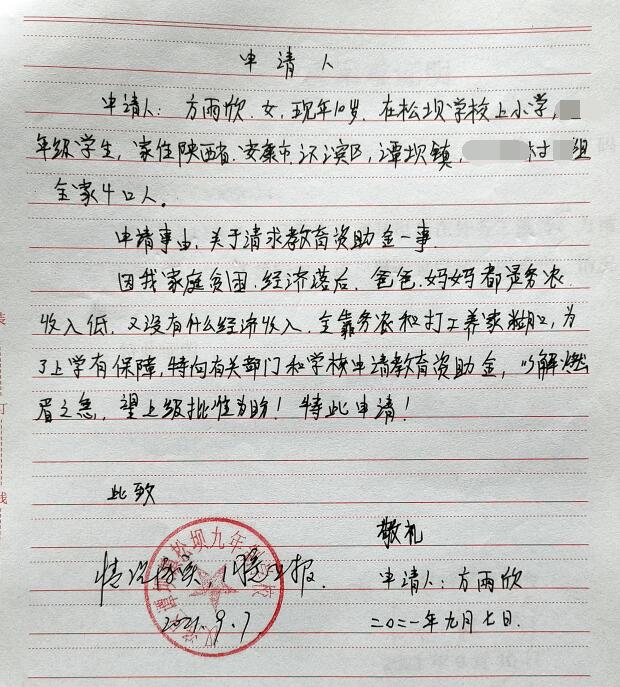 申请人
申请人：方雨欣，女，现年10岁，在松坝学校上小学，
年级学生，家住陕西省，安康市，汉滨区，谭坝镇，村 组
全家4口人。
申请事由：关于请求教育资助金一事。
因我家庭贫困，经济落后，爸爸，妈妈都是务农
收入低，又没有什么经济收入，全靠务农和打工养家糊口，为
了上学有保障，特向有关部门和学校申请教育资助金，以解燃
眉之急，望上级批准为盼！特此申请！
此致
敬礼
情况属实
2021.9.7
松坝九年
申请人：方雨欣
二〇二一年九月七日.
装
订
线